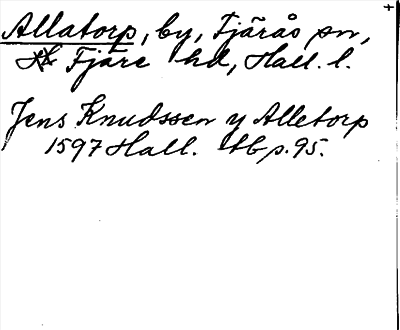 Allatorp, by, Fjärås sn,
Fjäre hd, Hall. l.
Jens Knudssen y Alletorp
1597 Hall. tb p. 95.